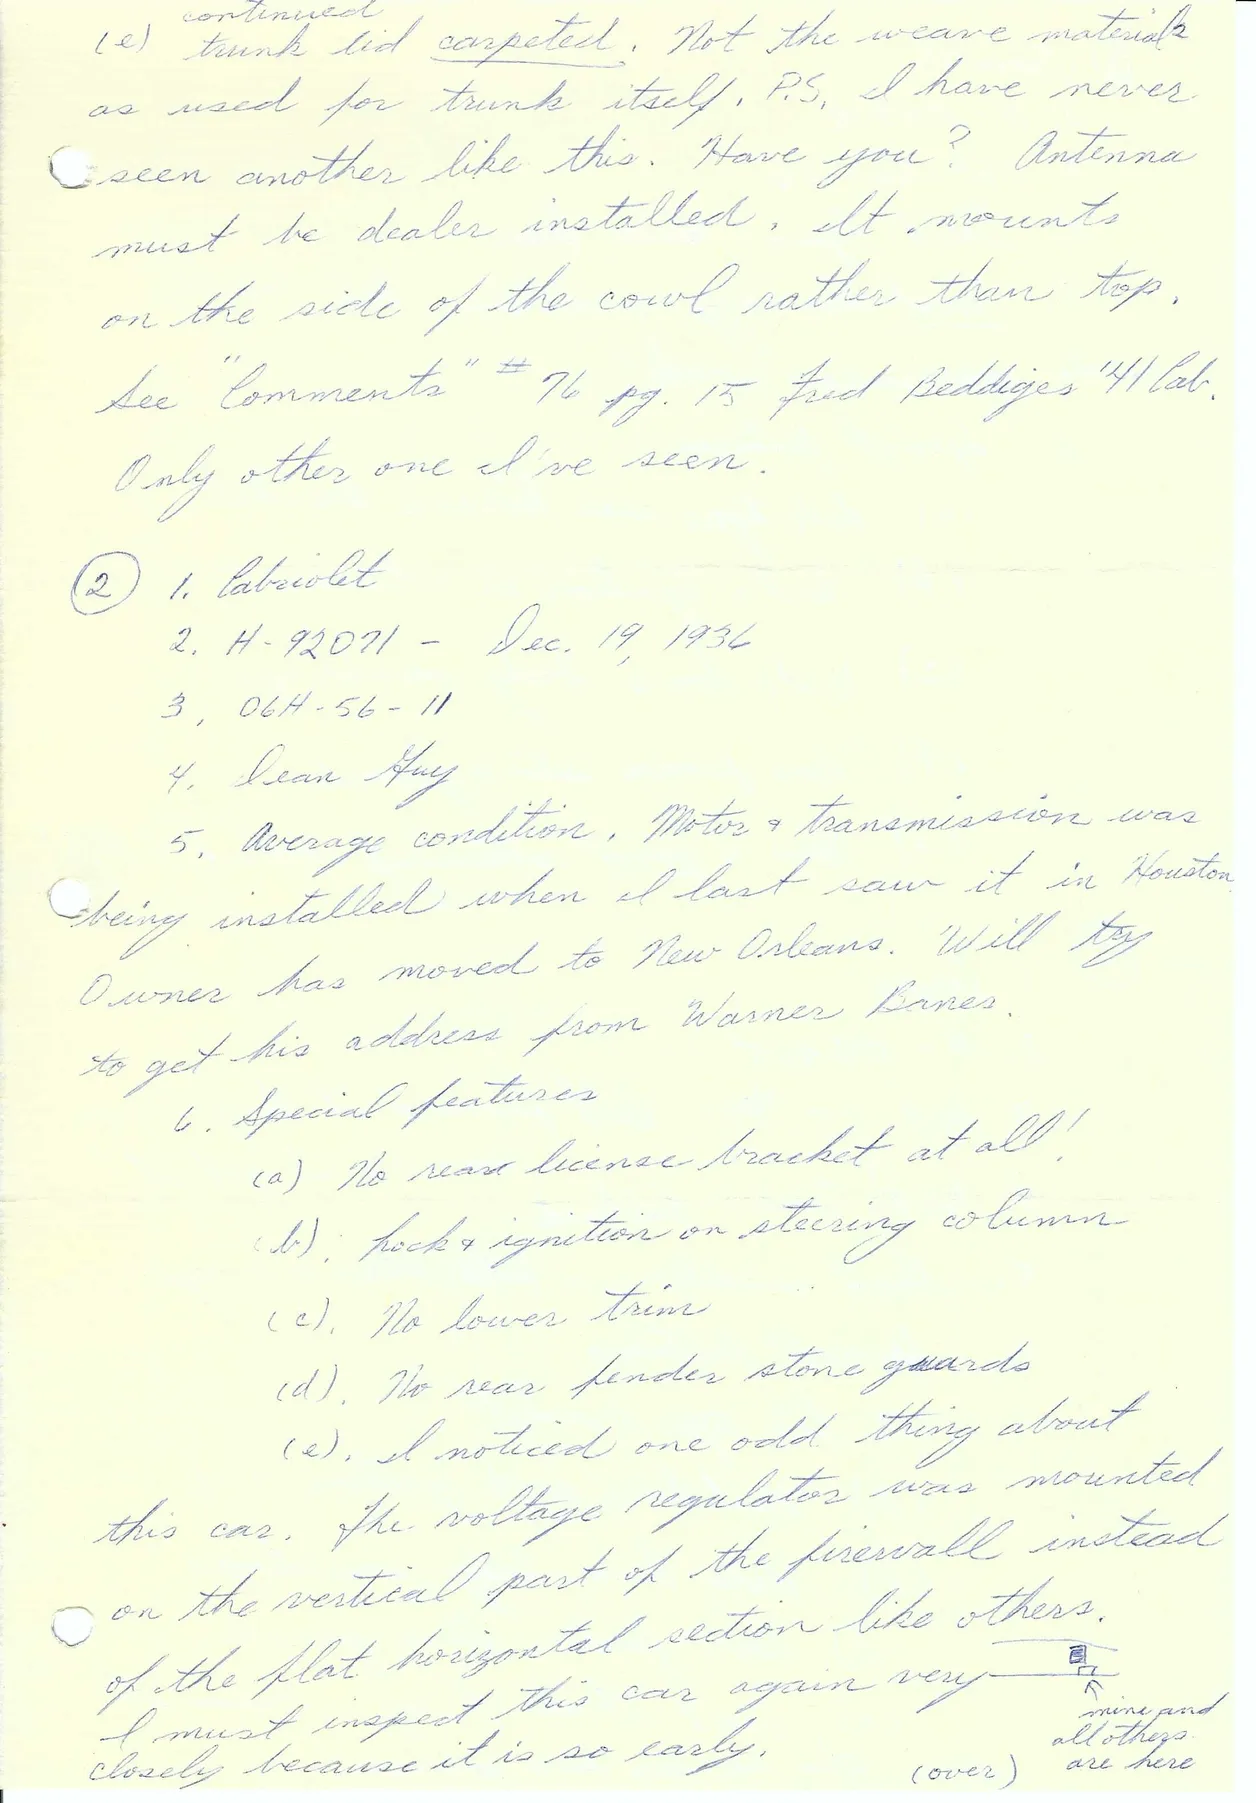 continued
(e) trunk lid carpeted. Not the weave materials
as used for trunk itself. P.S. I have never
seen another like this. Have you? Antenna
must be dealer installed. It mounts
on the side of the cowl rather than top.
See "Comments" #76 pg. 15 Fred Beddiges '41 Cab.
Only other one I've seen.
(2) 1. Cabriolet
2. H-92071 - Dec. 19, 1936
3. 06H-56-11
4. Dean Guy
5. Average condition. Motor & transmission was
being installed when I last saw it in Houston.
Owner has moved to New Orleans. Will try
to get his address from Warner Banes.
6. Special features
(a) No rear license bracket at all!
(b). Lock & ignition on steering column
(c). No lower trim
(d). No rear fender stone guards
(e). I noticed one odd thing about
this car. The voltage regulator was mounted
on the vertical part of the firewall instead
of the flat horizontal section like others.
I must inspect this car again very
closely because it is so early.
mine and
all others
are here
(over)